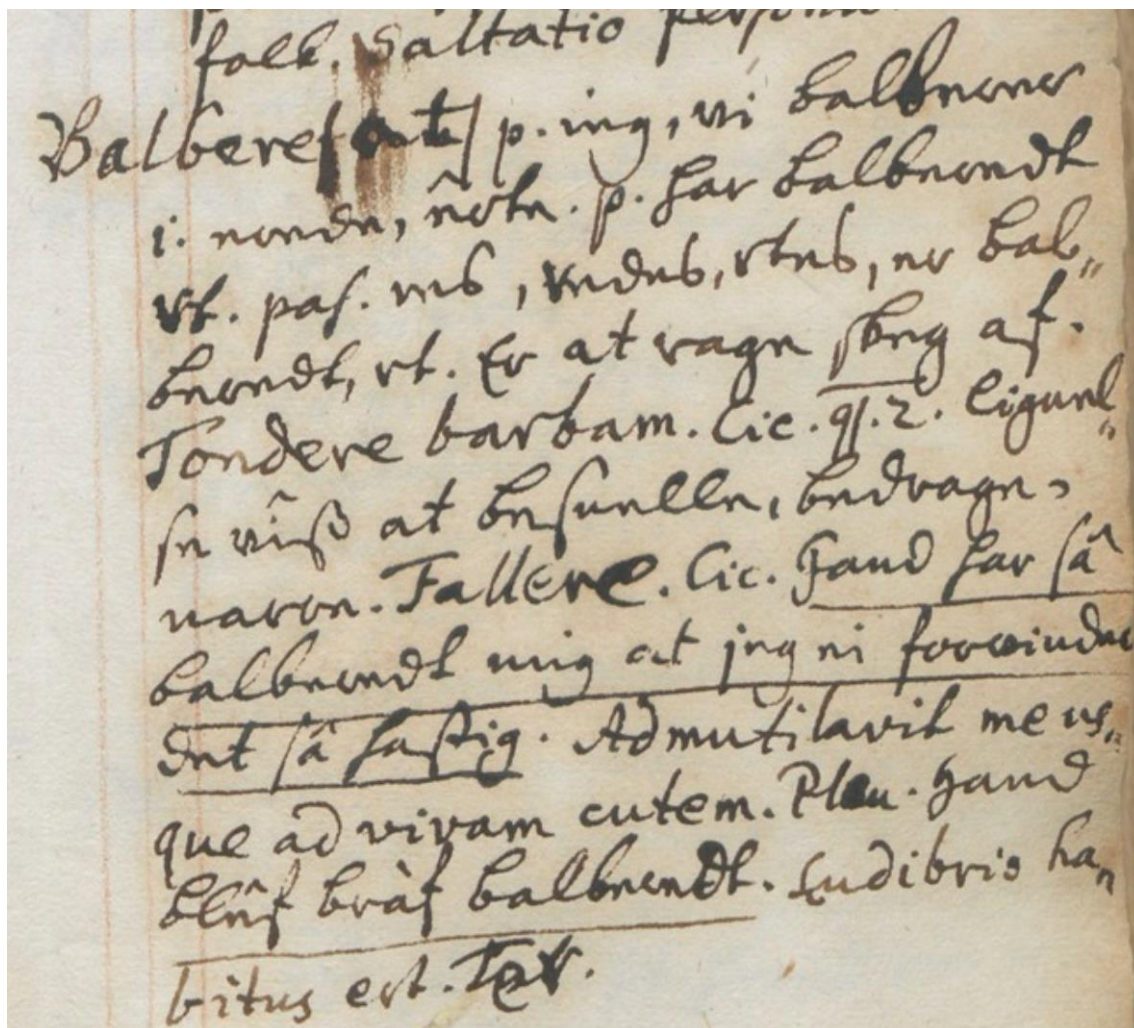 folk. Saltatio person
Balbere [at] p. ieg, vi balberer
i. erede, êrte. p. har balberedt
rt. pas. res, redes, rtes, er bal„
beredt, rt. Er at rage skeg af.
Tondere barbam. Cic. qf. 2. ligeuel„
se vîß at besuelle, bedrage,
narre. Fallere. Cic. Hand har sâ
balberedt mig at jeg ei forvinder
det sâ hastig. Admutilavit me us„
que ad vivam cutem. Plau. Hand
blêf bràf balberedt. Ludibrio ha„
bitus est. Ter.